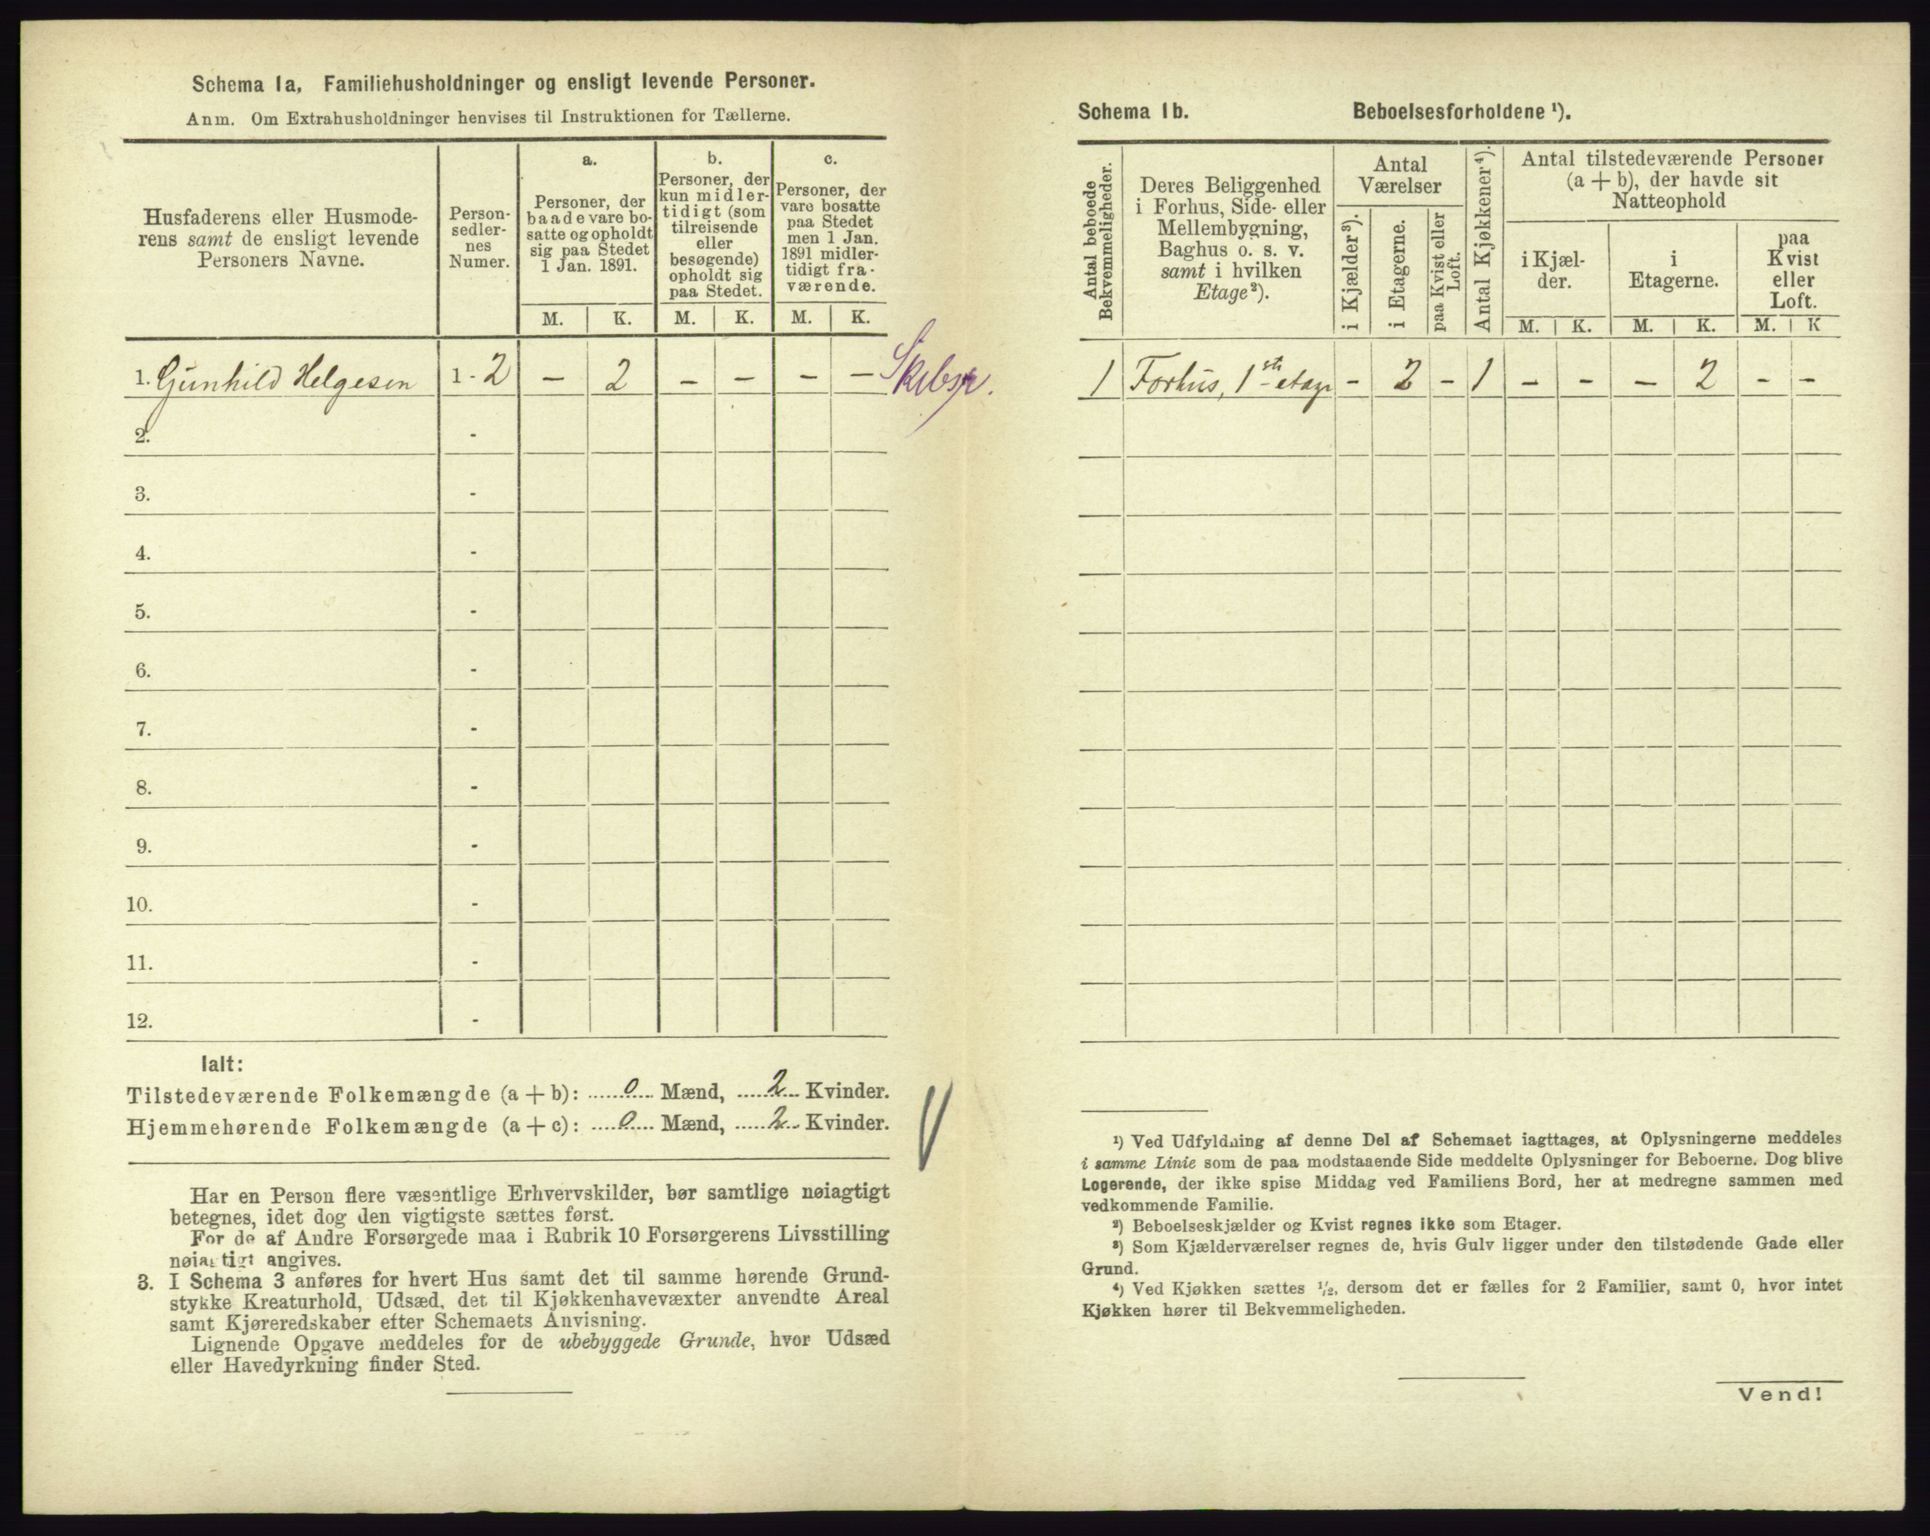 Schema 1a, Familiehusholdninger og ensligt levende Personer.
Anm. Om Extrahusholdninger henvises til Instruktionen for Tællerne.
Husfaderens eller Husmode-
rens samt de ensligt levende
Personers Navne.
Person-
sedler-
nes
Numer.
a.
Personer, der
baade vare bo-
satte og opholdt
sig paa Stedet
1 Jan. 1891.
b.
Personer, der
kun midler-
tidigt (som
tilreisende
eller
besøgende)
opholdt sig
paa Stedet.
c.
Personer, der
vare bosatte
paa Stedet
men 1 Jan.
1891 midler-
tidigt fra-
værende.
M. K. M. K. M. K.
1. Gunhild Helgesen 1 - 2 – 2 – – – –
2. -
3. -
4. -
5. -
6. -
7. -
8. -
9. -
10. -
11. -
12. -
Ialt:
Tilstedeværende Folkemængde (a + b): 0 Mænd, 2 Kvinder.
Hjemmehørende Folkemængde (a + c): 0 Mænd, 2 Kvinder.
Har en Person flere væsentlige Erhvervskilder, bør samtlige nøiagtigt
betegnes, idet dog den vigtigste sættes først.
For de af Andre Forsørgede maa i Rubrik 10 Forsørgerens Livsstilling
nøiagtigt angives.
3. I Schema 3 anføres for hvert Hus samt det til samme hørende Grund-
stykke Kreaturhold, Udsæd, det til Kjøkkenhavevæxter anvendte Areal
samt Kjøreredskaber efter Schemaets Anvisning.
Lignende Opgave meddeles for de ubebyggede Grunde, hvor Udsæd
eller Havedyrkning finder Sted.
Schema 1b. Beboelsesforholdene ¹).
Antal beboede
Bekvemmeligheder.
Deres Beliggenhed
i Forhus, Side- eller
Mellembygning,
Baghus o. s. v.
samt i hvilken
Etage²).
Antal
Værelser
i Kjælder³).
i Etagerne.
paa Kvist eller
Loft.
Antal Kjøkkener⁴).
Antal tilstedeværende Personer
(a + b), der havde sit
Natteophold
i Kjæl-
der.
i
Etagerne.
paa
Kvist
eller
Loft.
M. K. M. K. M. K
1 Forhus, 1ste etage – 2 – 1 – – – 2 – –
¹) Ved Udfyldning af denne Del af Schemaet iagttages, at Oplysningerne meddeles
i samme Linie som de paa modstaaende Side meddelte Oplysninger for Beboerne. Dog blive
Logerende, der ikke spise Middag ved Familiens Bord, her at medregne sammen med
vedkommende Familie.
²) Beboelseskjælder og Kvist regnes ikke som Etager.
³) Som Kjælderværelser regnes de, hvis Gulv ligger under den tilstødende Gade eller
Grund.
⁴) Ved Kjøkken sættes ½, dersom det er fælles for 2 Familier, samt 0, hvor intet
Kjøkken hører til Bekvemmeligheden.
Vend!